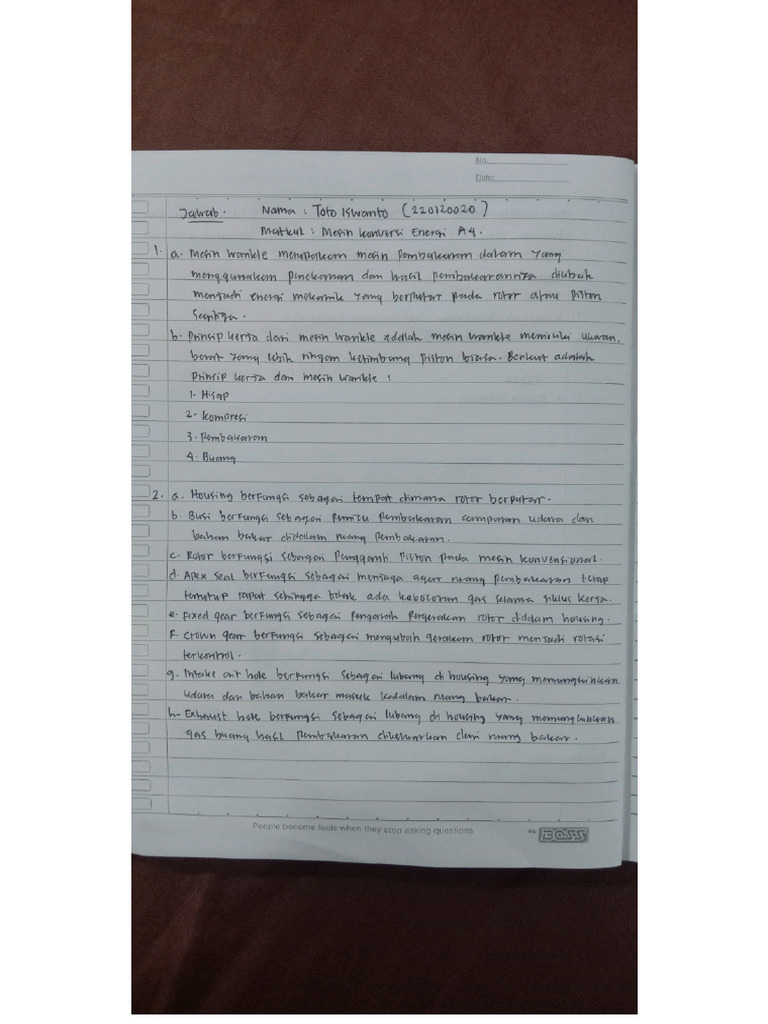 No.
Date:
Jawab. Nama : Toto Iswanto (220120020)
Matkul : Mesin Konversi Energi A4.
1. a. Mesin wankle merupakan mesin pembakaran dalam yang
menggunakan penekanan dan hasil pembakarannya diubah
menjadi energi mekanik yang berputar pada rotor atau piston
segitiga.
b. Prinsip kerja dari mesin wankle adalah mesin wankle memiliki ukuran,
berat yang lebih ringan ketimbang piston biasa. Berikut adalah
prinsip kerja dari mesin wankle :
1. Hisap
2. Kompresi
3. Pembakaran
4. Buang
2. a. Housing berfungsi sebagai tempat dimana rotor berputar.
b. Busi berfungsi sebagai pemicu pembakaran campuran udara dan
bahan bakar didalam ruang pembakaran.
c. Rotor berfungsi sebagai pengganti piston pada mesin konvensional.
d. Apex seal berfungsi sebagai menjaga agar ruang pembakaran tetap
tertutup rapat sehingga tidak ada kebocoran gas selama siklus kerja.
e. Fixed gear berfungsi sebagai pengarah pergerakan rotor didalam housing.
f. Crown gear berfungsi sebagai mengubah gerakan rotor menjadi rotasi
terkontrol.
g. Intake air hole berfungsi sebagai lubang di housing yang memungkinkan
udara dan bahan bakar masuk kedalam ruang bakar.
h. Exhaust hole berfungsi sebagai lubang di housing yang memungkinkan
gas buang hasil pembakaran dikeluarkan dari ruang bakar.
People become fools when they stop asking questions
BOSS